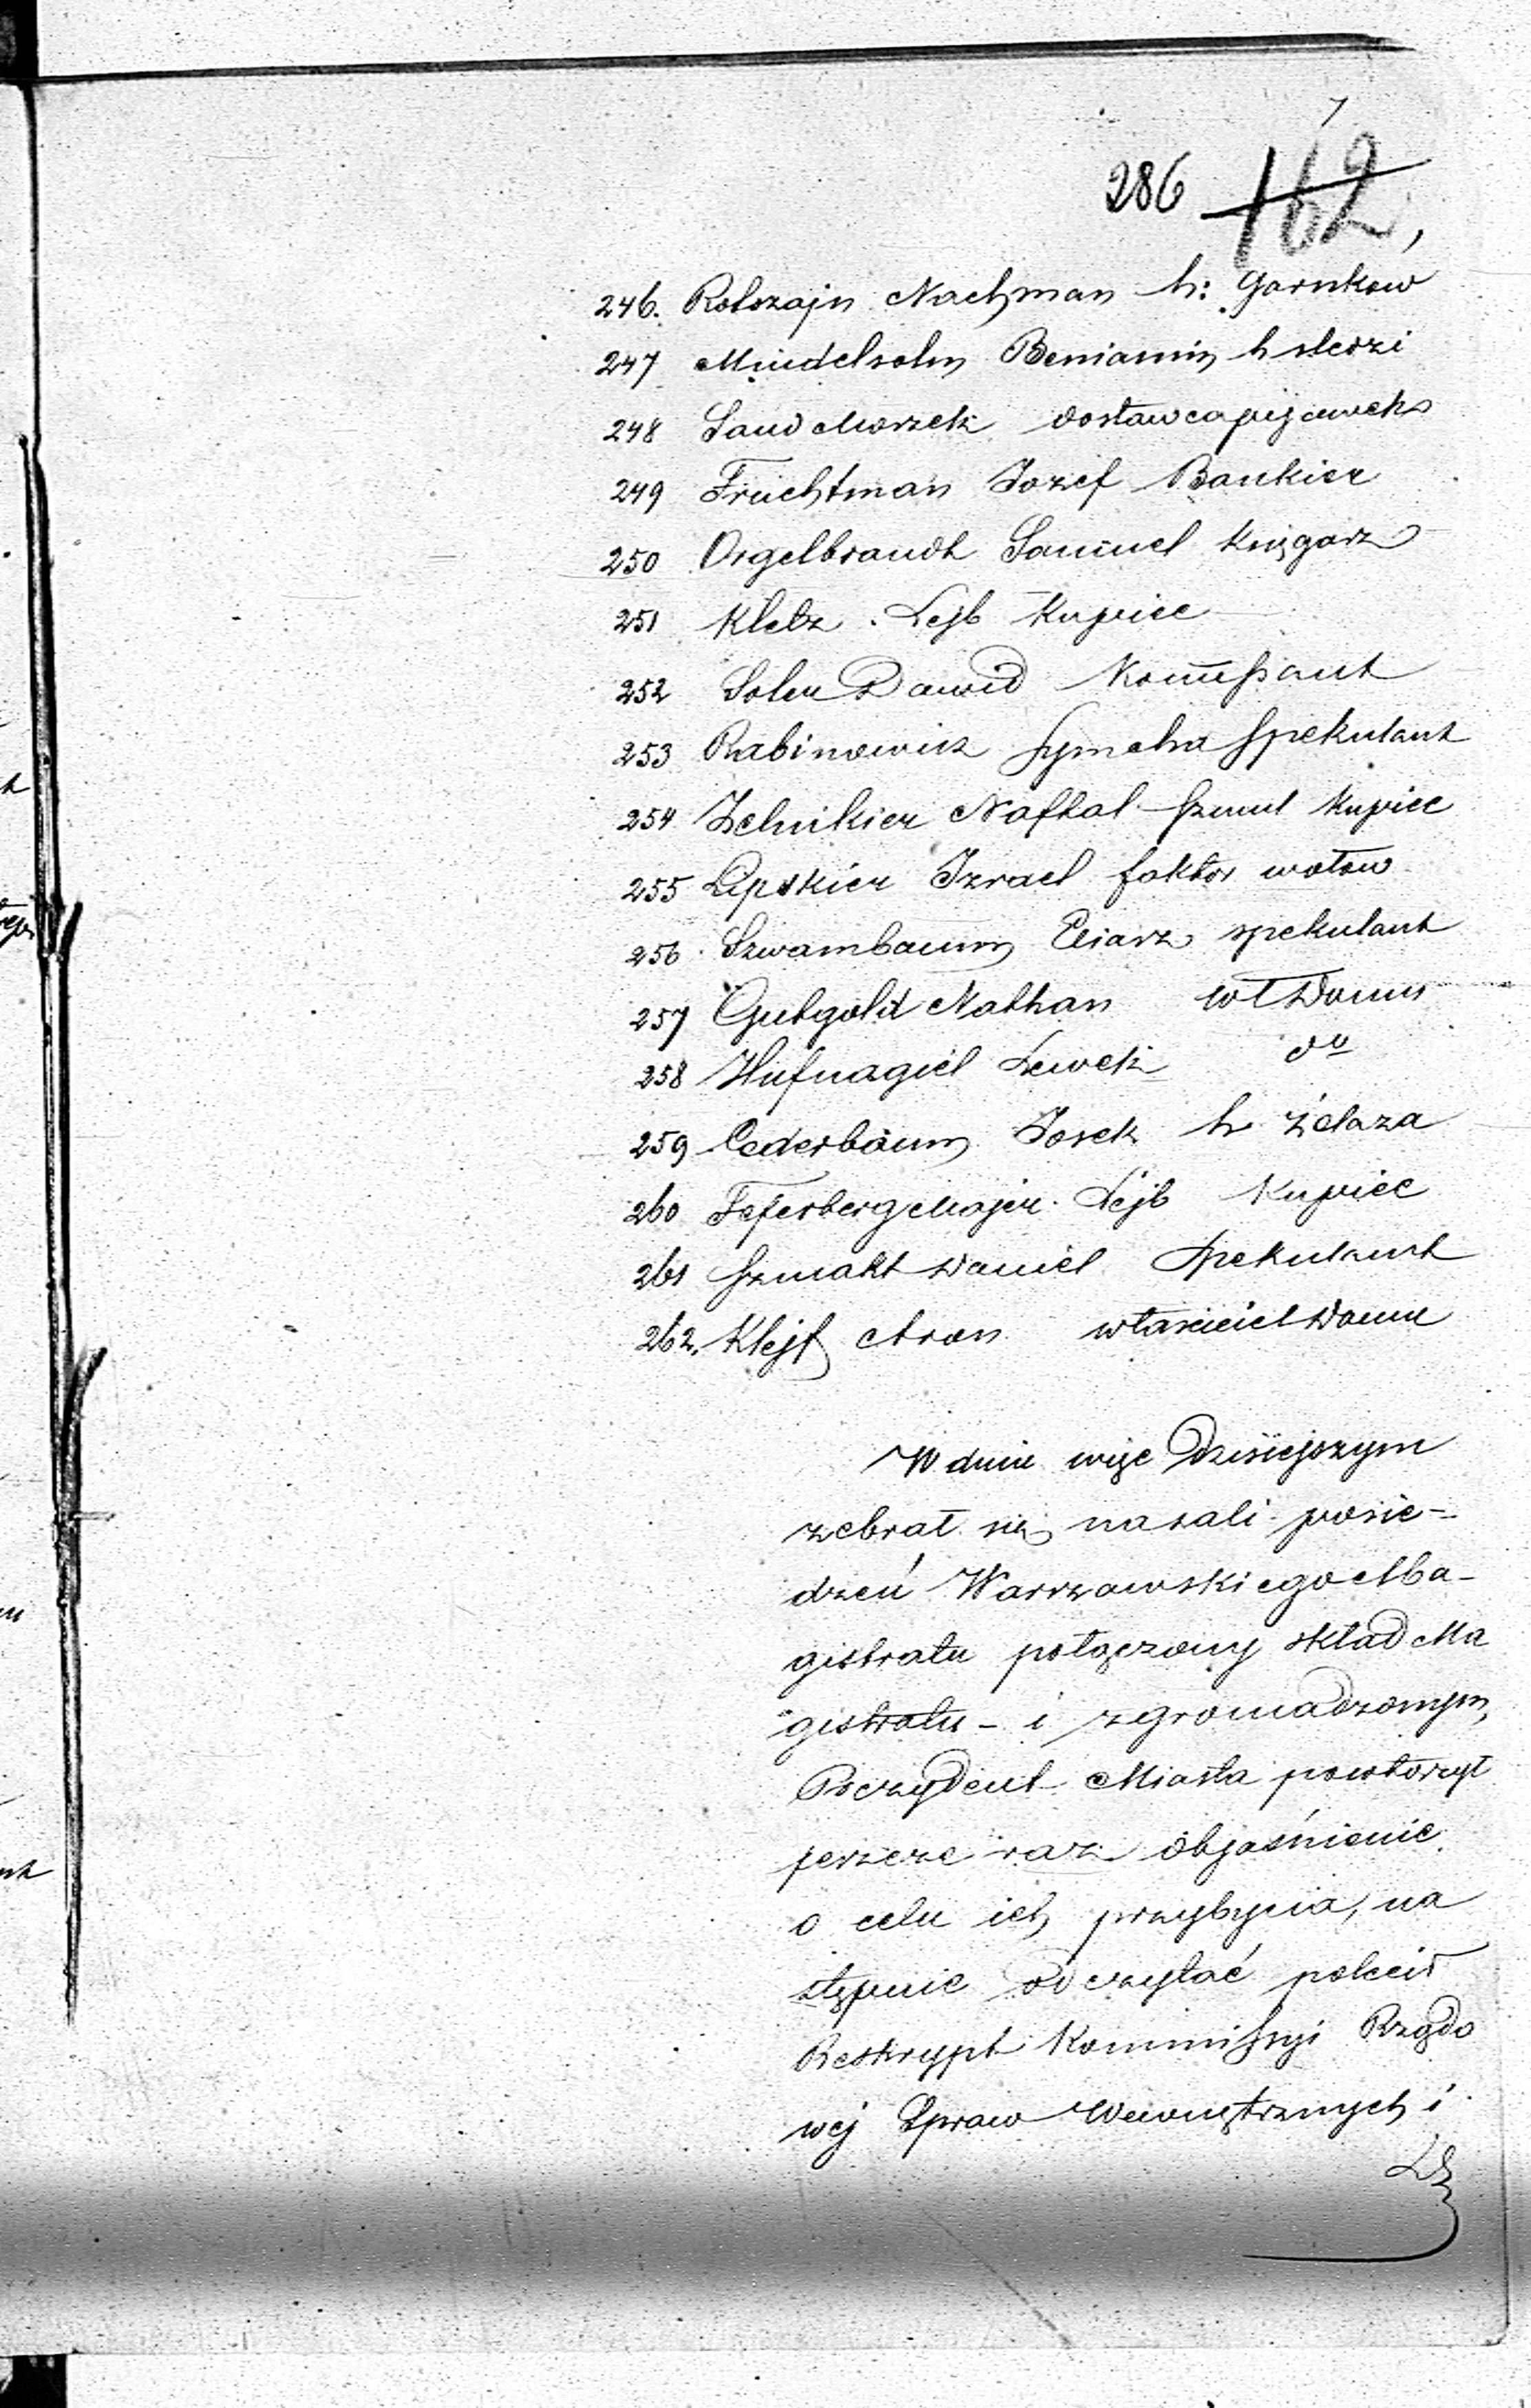 286 162
246. Rotszajn Nachman h: Garnkow
247 Mendelsohn Beniamin h sledzi
248 Saud Moszek dostawca pijawek
249 Früchtman Jozef Bankier
250 Orgelbrandt Samuel Księgarz
251 Kletz Lejb Kupiec
252 Dawid Kommissant
253 Rabinowicz Symcha Spekulant
254 Zelnikier Naftal Szmul Kupiec
255 Lipskier Izrael faktor wołow
256 Szwambaum Eliasz spekulant
257 Gutgold Nathan Wł Domu
258 Hufnagiel Lewek do
259 Cederbaum Josek h żelaza
260 Feferberg Majer Lejb Kupiec
261 Szmakt Daniel Spekulant
262. Klejf Aron własciciel Domu
W dniu więc Dzisiejszym
zebrał się na sali posie-
dzeń Warszawskiego Ma-
gistratu połączony skład Ma
gistratu - i zgromadzonym,
Prezydent Miasta powtorzył
jeszcze raz objaśnienie
o celu ich przybycia, na
stępnie odczytać polecił
Reskrypt Kommissyi Rządo
wej Spraw Wewnętrznych i